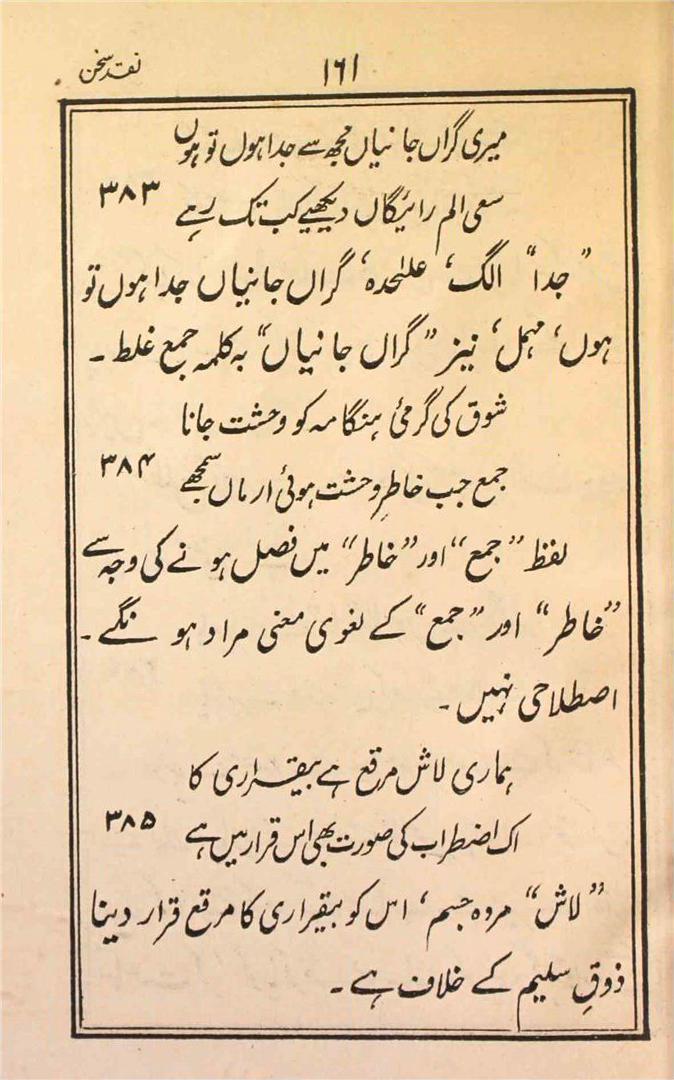 نقد سخن
۱۶۱
میری گراں جانیاں مجھ سے جدا ہوں تو ہوں
سعی الم رائیگاں دیکھیے کب تک رہے ۳۸۳
”جدا“ الگ، علیٰحدہ، گراں جانیاں جدا ہوں تو
ہوں، مہمل، نیز ”گراں جانیاں“ بہ کلمہ جمع غلط ۔
شوق کی گرمیٔ ہنگامہ کو وحشت جانا
جمع جب خاطرِ وحشت ہوئی ارماں سمجھے ۳۸۴
لفظ ”جمع“ اور ”خاطر“ میں فصل ہونے کی وجہ سے
”خاطر“ اور ”جمع“ کے لغوی معنی مراد ہو نگے ۔
اصطلاحی نہیں ۔
ہماری لاش مرقع ہے بیقراری کا
اک اضطراب کی صورت بھی اس قرار میں ہے ۳۸۵
”لاش“ مردہ جسم، اس کو بیقراری کا مرقع قرار دینا
ذوقِ سلیم کے خلاف ہے ۔